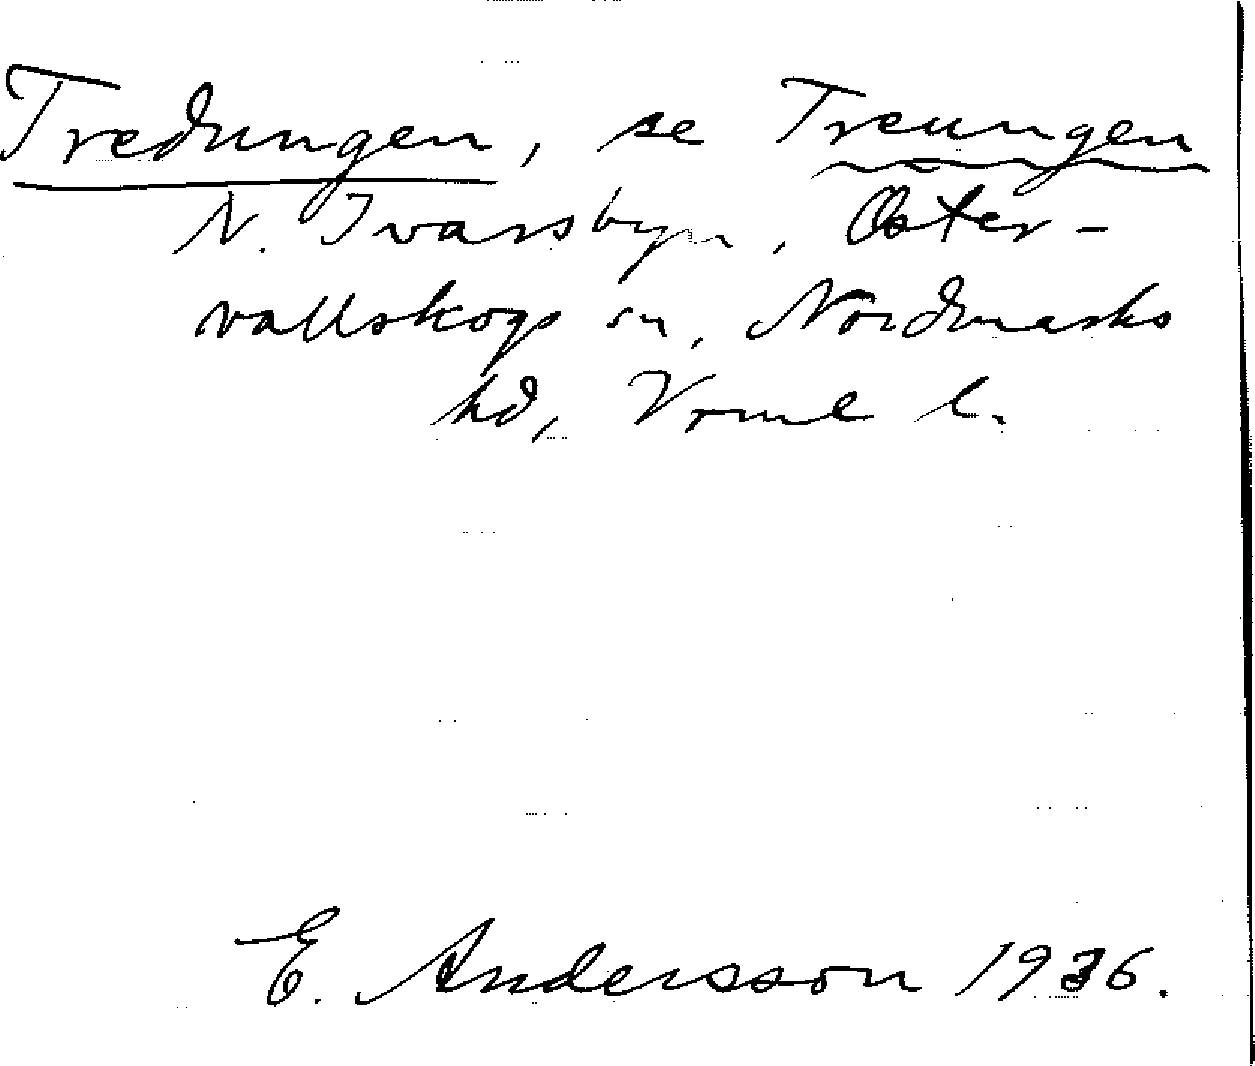 Tredungen, se Treungen
N. Ivarsbyn, Öster-
vallskogs sn, Nordmarks
hd, Vrml l.
E. Andersson 1936.